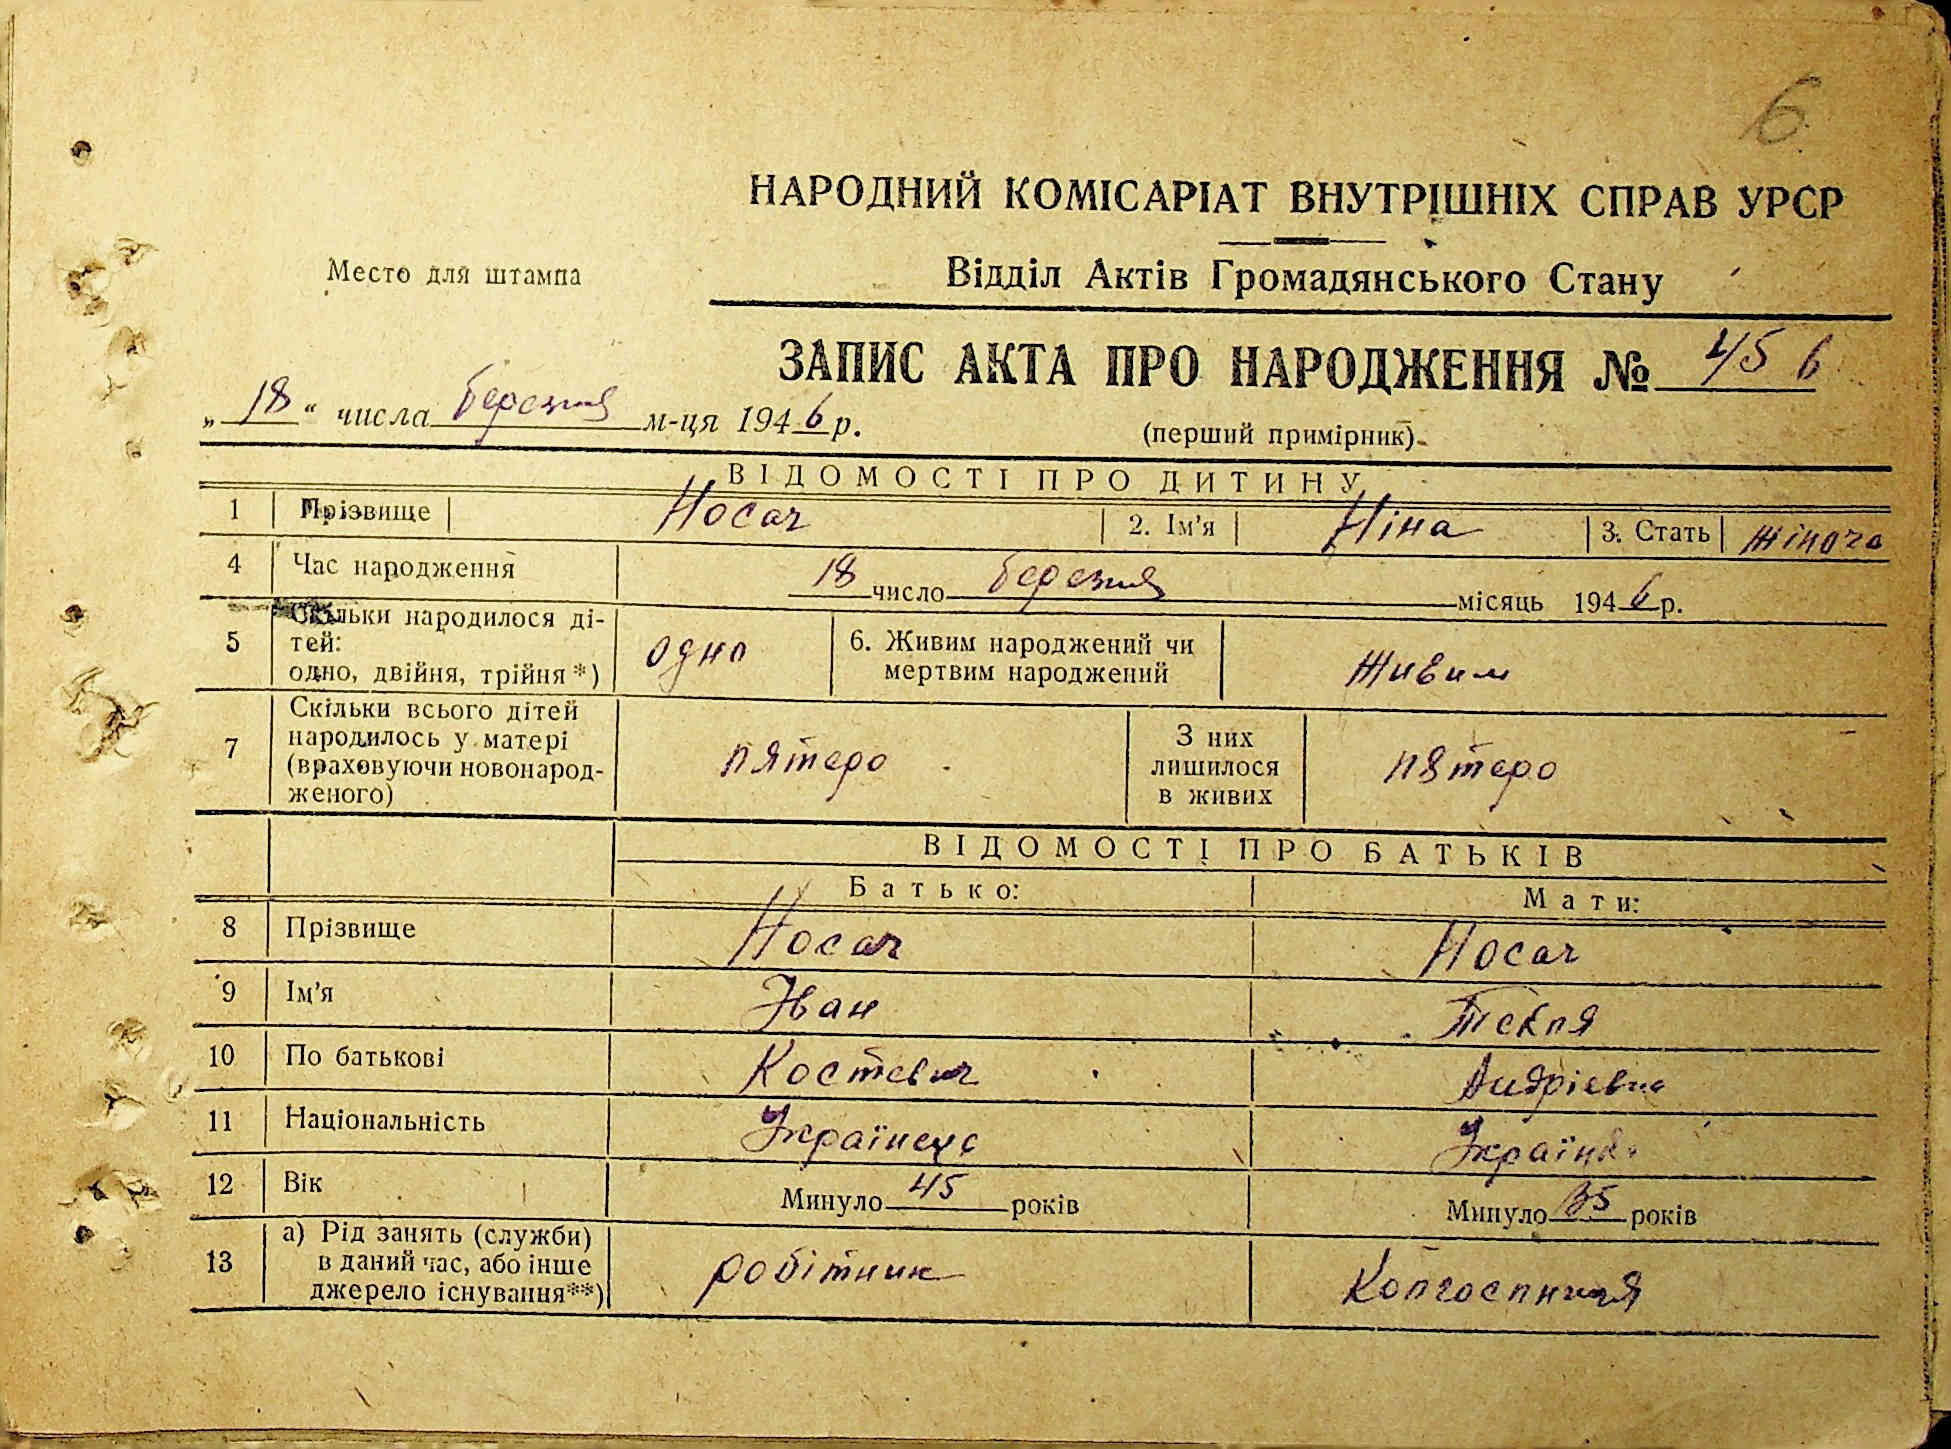 6
НАРОДНИЙ КОМІСАРІАТ ВНУТРІШНІХ СПРАВ УРСР
Место для штампа
Відділ Актів Громадянського Стану
ЗАПИС АКТА ПРО НАРОДЖЕННЯ №
„18“ числа березня м-ця 1946 р.
(перший примірник)
ВІДОМОСТІ ПРО ДИТИНУ
1 Прізвище Носач 2. Ім'я Ніна 3. Стать жіноча
4 Час народження 18 число березня місяць 1946 р.
5 Скільки народилося ді-
тей:
одно, двійня, трійня *) одно 6. Живим народжений чи
мертвим народжений Живим
7 Скільки всього дітей
народилось у матері
(враховуючи новонарод-
женого) пятеро З них
лишилося
в живих пятеро
ВІДОМОСТІ ПРО БАТЬКІВ
Батько: Мати:
8 Прізвище Носач Носач
9 Ім'я Іван Текля
10 По батькові Костевич Андрієвна
11 Національність Українець Українка
12 Вік Минуло 45 років Минуло 35 років
13 а) Рід занять (служби)
в даний час, або інше
джерело існування**) робітник Колгоспниця